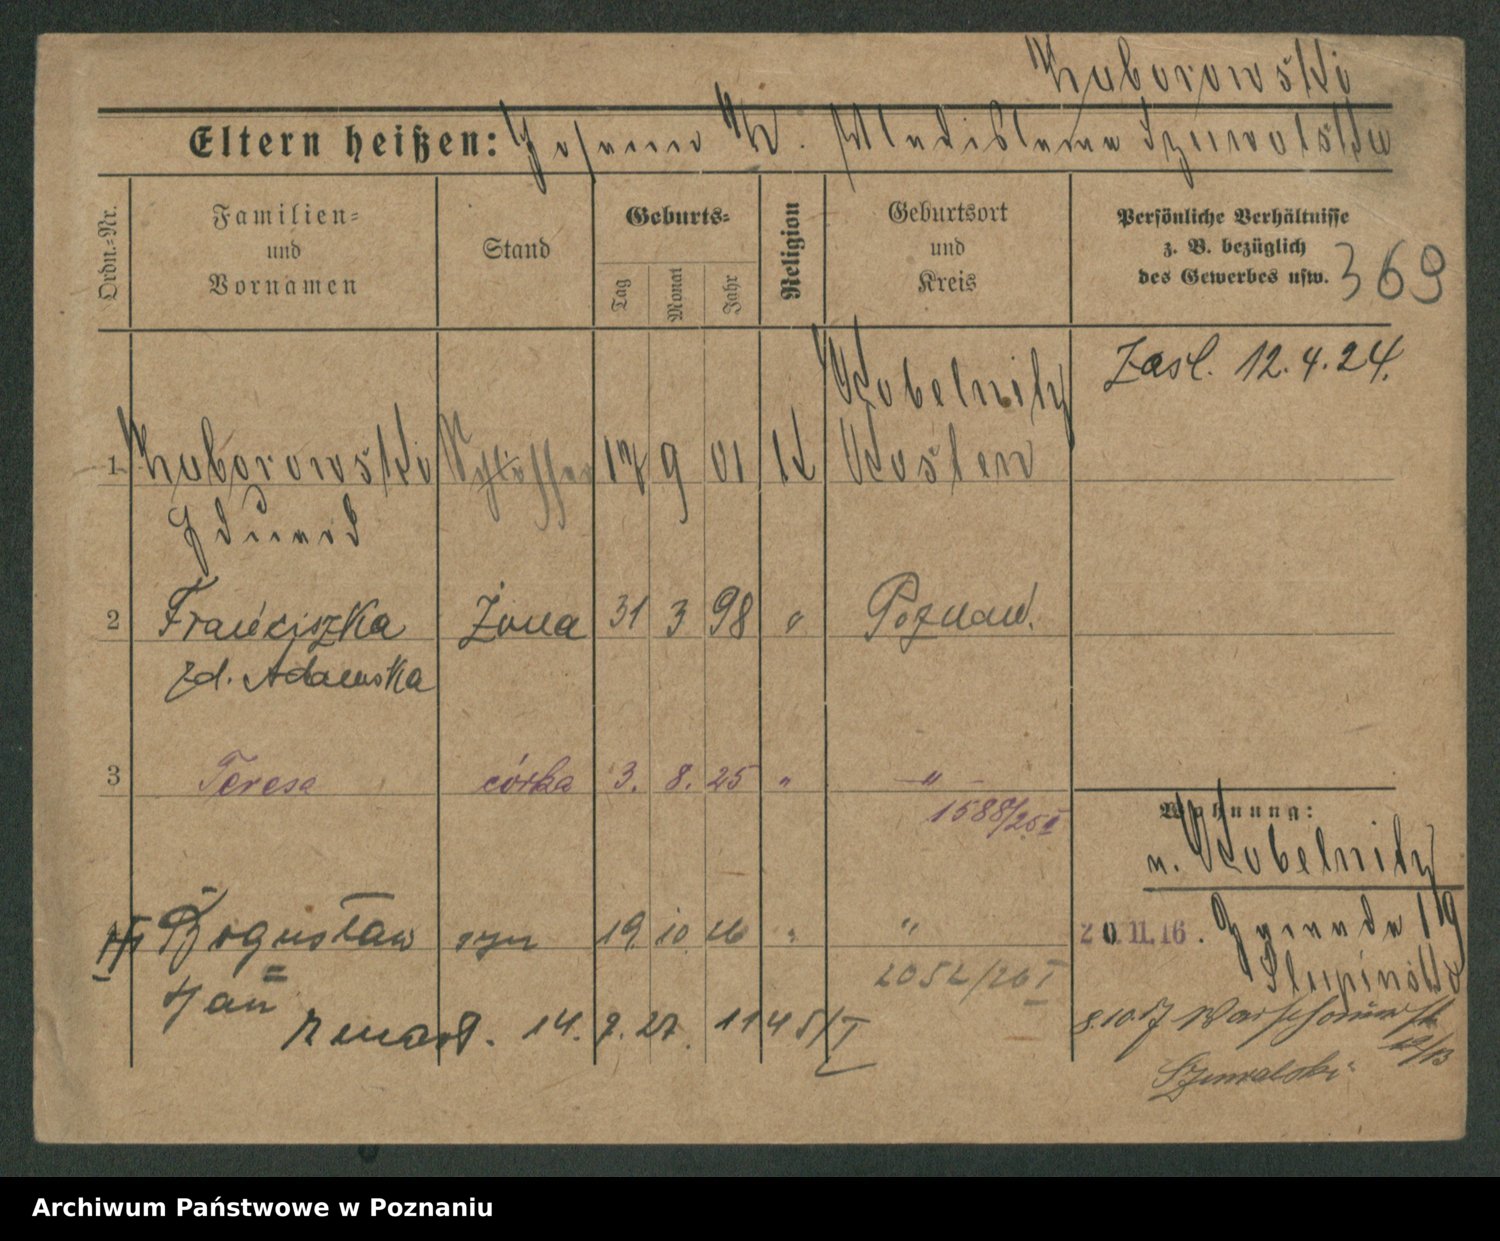 Kuborowski
Eltern heißen: Johann K. Wladislawa Szuwalska
Ordn.-Nr.
Familien- und Vornamen
Stand
Geburts-
Tag
Monat
Jahr
Religion
Geburtsort und Kreis
Persönliche Verhältnisse
z. B. bezüglich
des Gewerbes usw. 369
Kobelnitz
Zasl. 12.4.24.
1 Kuborowski Schlosser 17 9 01 K Kosten
Eduard
2 Franciszka Żona 31 3 98 " Poznań.
zd. Adamska
3 Teresa córka 3. 8. 25 " — " —
1588/25 I
Wohnung:
n. Kobelnitz
Bogusław syn 19. 10 26 " "
20.11.16. 19
Jan
2052/26 I
zmarł. 14. 9. 27. 1145/I
8.10.17 Warschauerstr
12/13
Szuwalski
Archiwum Państwowe w Poznaniu